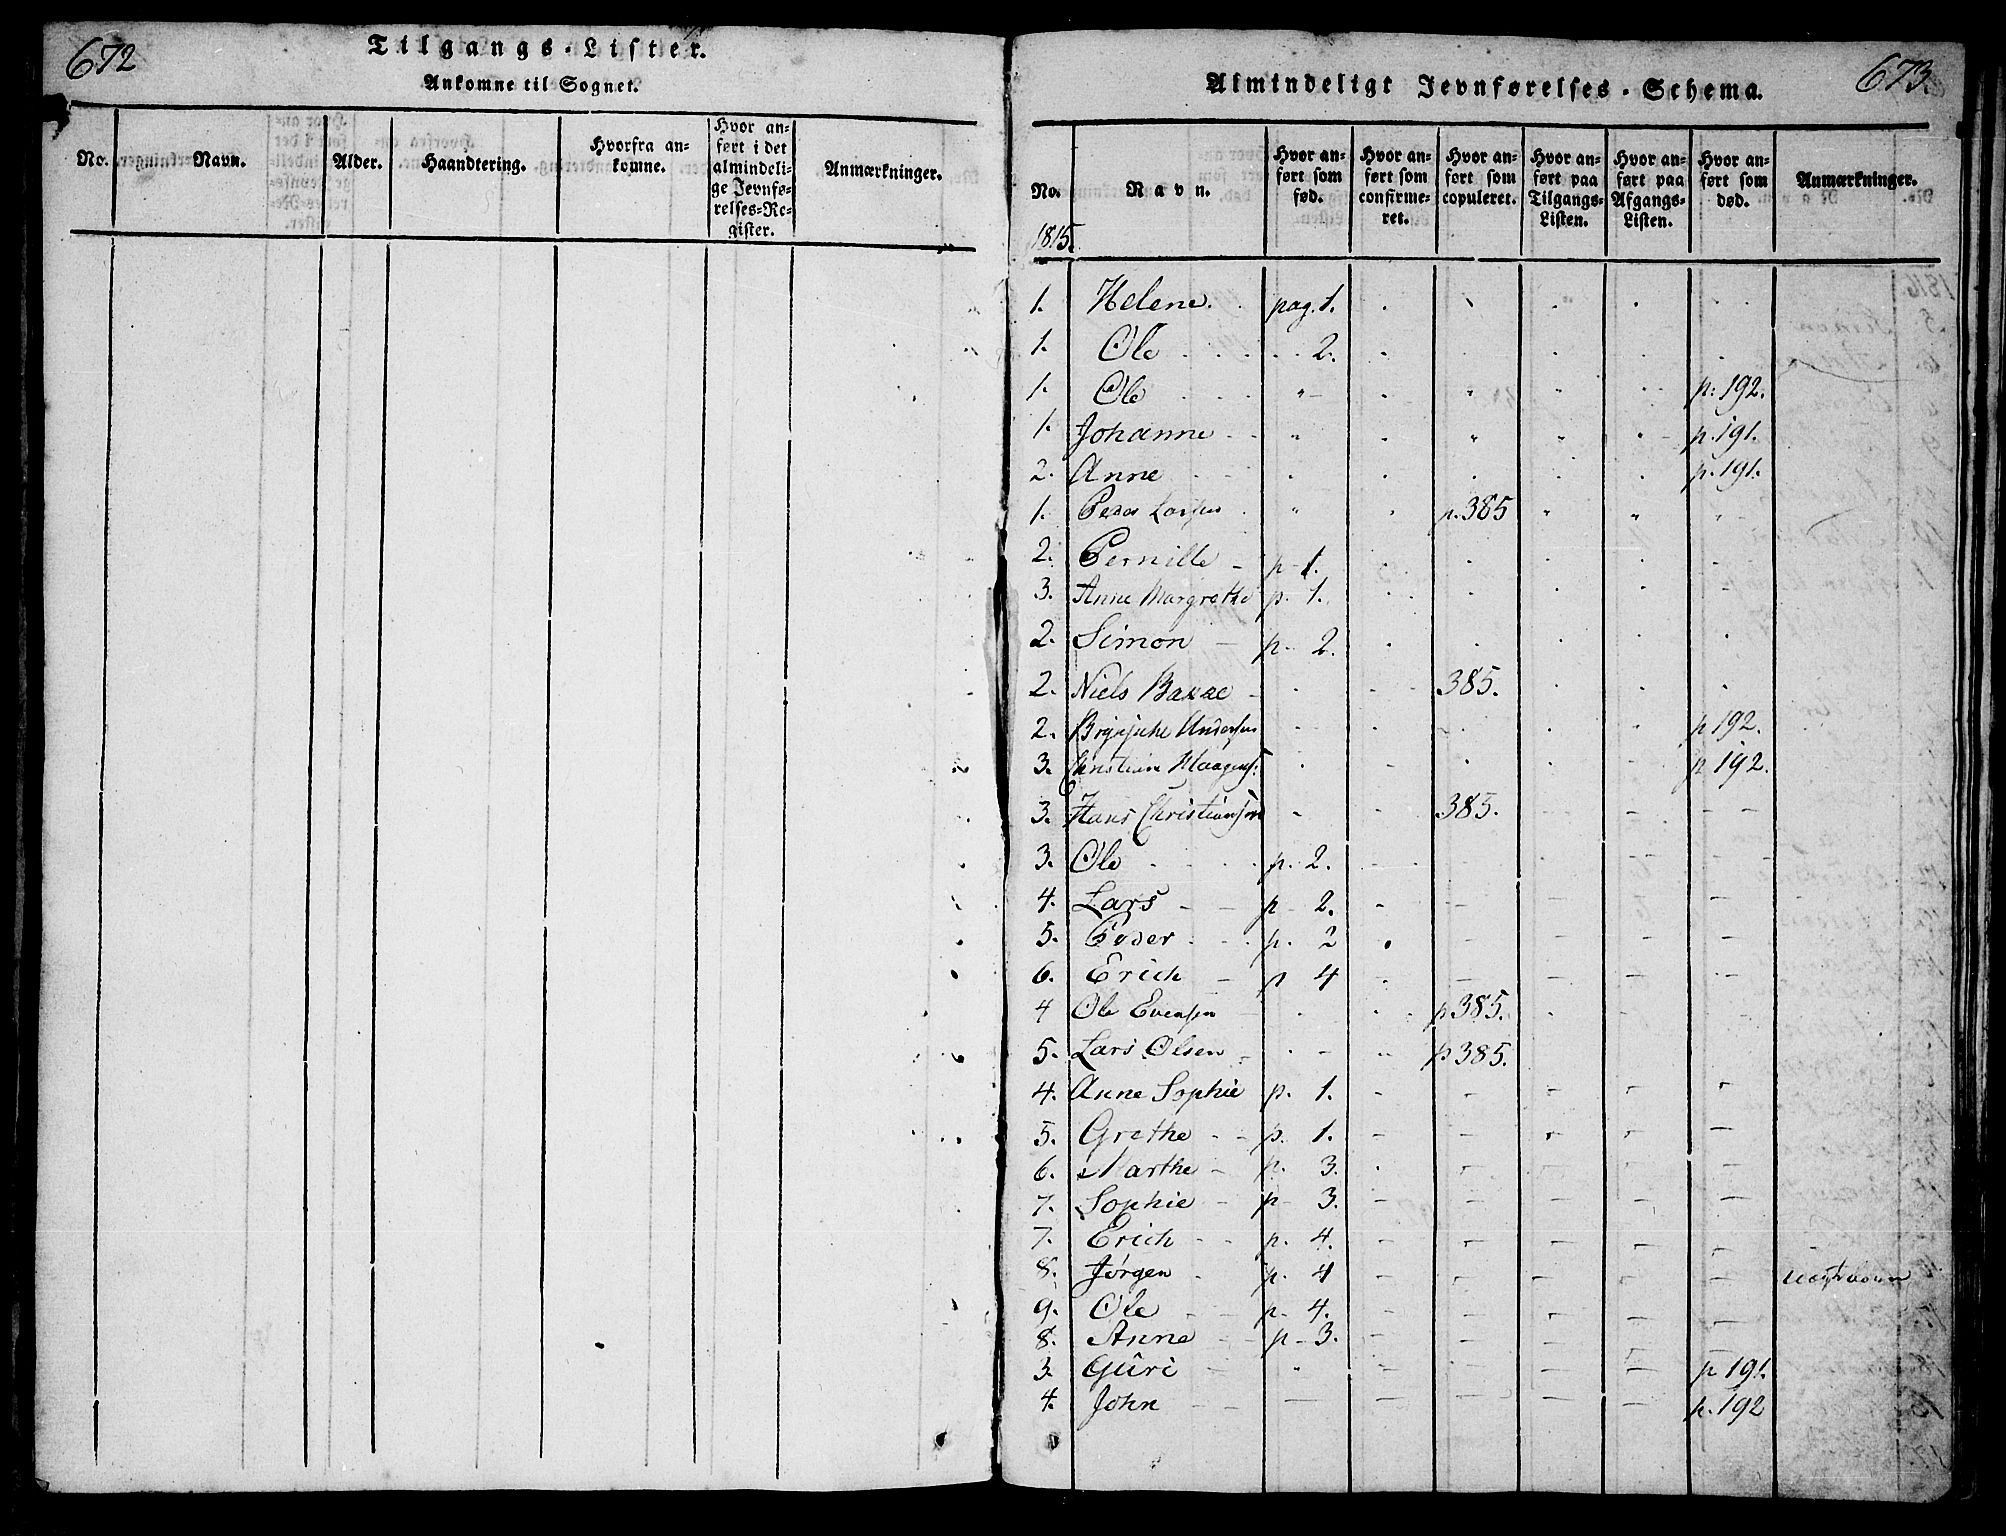 672
Tilgangs-Lister.
Ankomne til Sognet.
No.
Navn.
Alder.
Haandtering.
Hvorfra an=
komne.
Hvor an=
ført i det
almindeli=
ge Jevnfø=
relses=Re=
gister.
Anmærkninger.
673.
Almindeligt Jevnførelses-Schema.
No.
Navn.
Hvor an=
ført som
fød.
Hvor an=
ført som
confirme=
ret.
Hvor an=
ført som
copuleret.
Hvor an=
ført paa
Tilgangs=
Listen.
Hvor an=
ført paa
Afgangs=
Listen.
Hvor an=
ført som
død.
Anmærkninger.
1815.
1. Helene. pag. 1.
1. Ole 2.
1. Ole p: 192.
1. Johanne p. 191.
2. Anne p. 191.
1. Peder Larsen p. 385
2. Pernille p 1.
3. Anne Margrethe p. 1.
2. Simon p. 2.
2. Niels 385.
2. Andersen p 192.
3. Christian p 192.
3. Hans Christiansen 385.
3. Ole p. 2.
4. Lars p 2.
5. Peder p. 2
6. Erich p 4
4 Ole Evensen p 385.
5. Lars Olsen p 385.
4. Anne Sophie p. 1.
5. Grethe p. 1.
6. Marthe p. 3.
7. Sophie p 3.
7. Erich p. 4.
8. Jørgen p. 4
9. Ole p. 4.
8. Anne p 3.
3. Guri p 191.
4. John p. 192